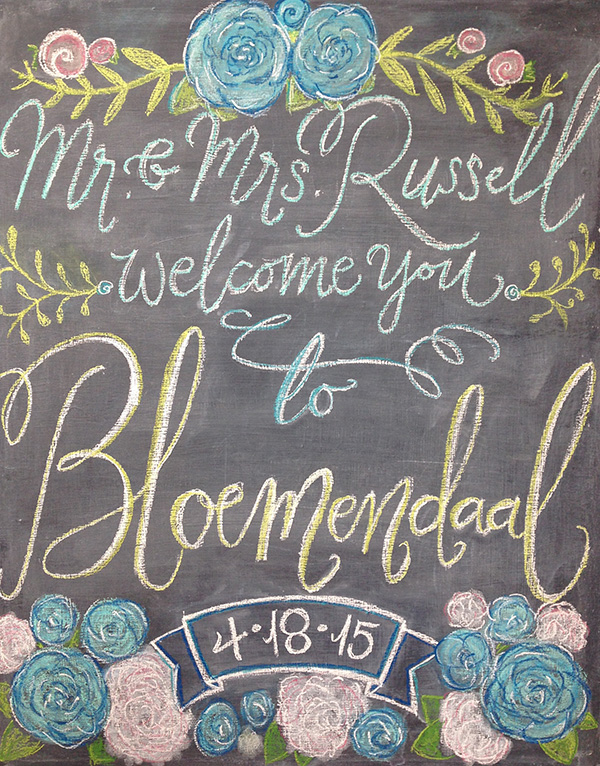 Mr. & Mrs. Russell
welcome you
to
Bloemendaal
4·18·15